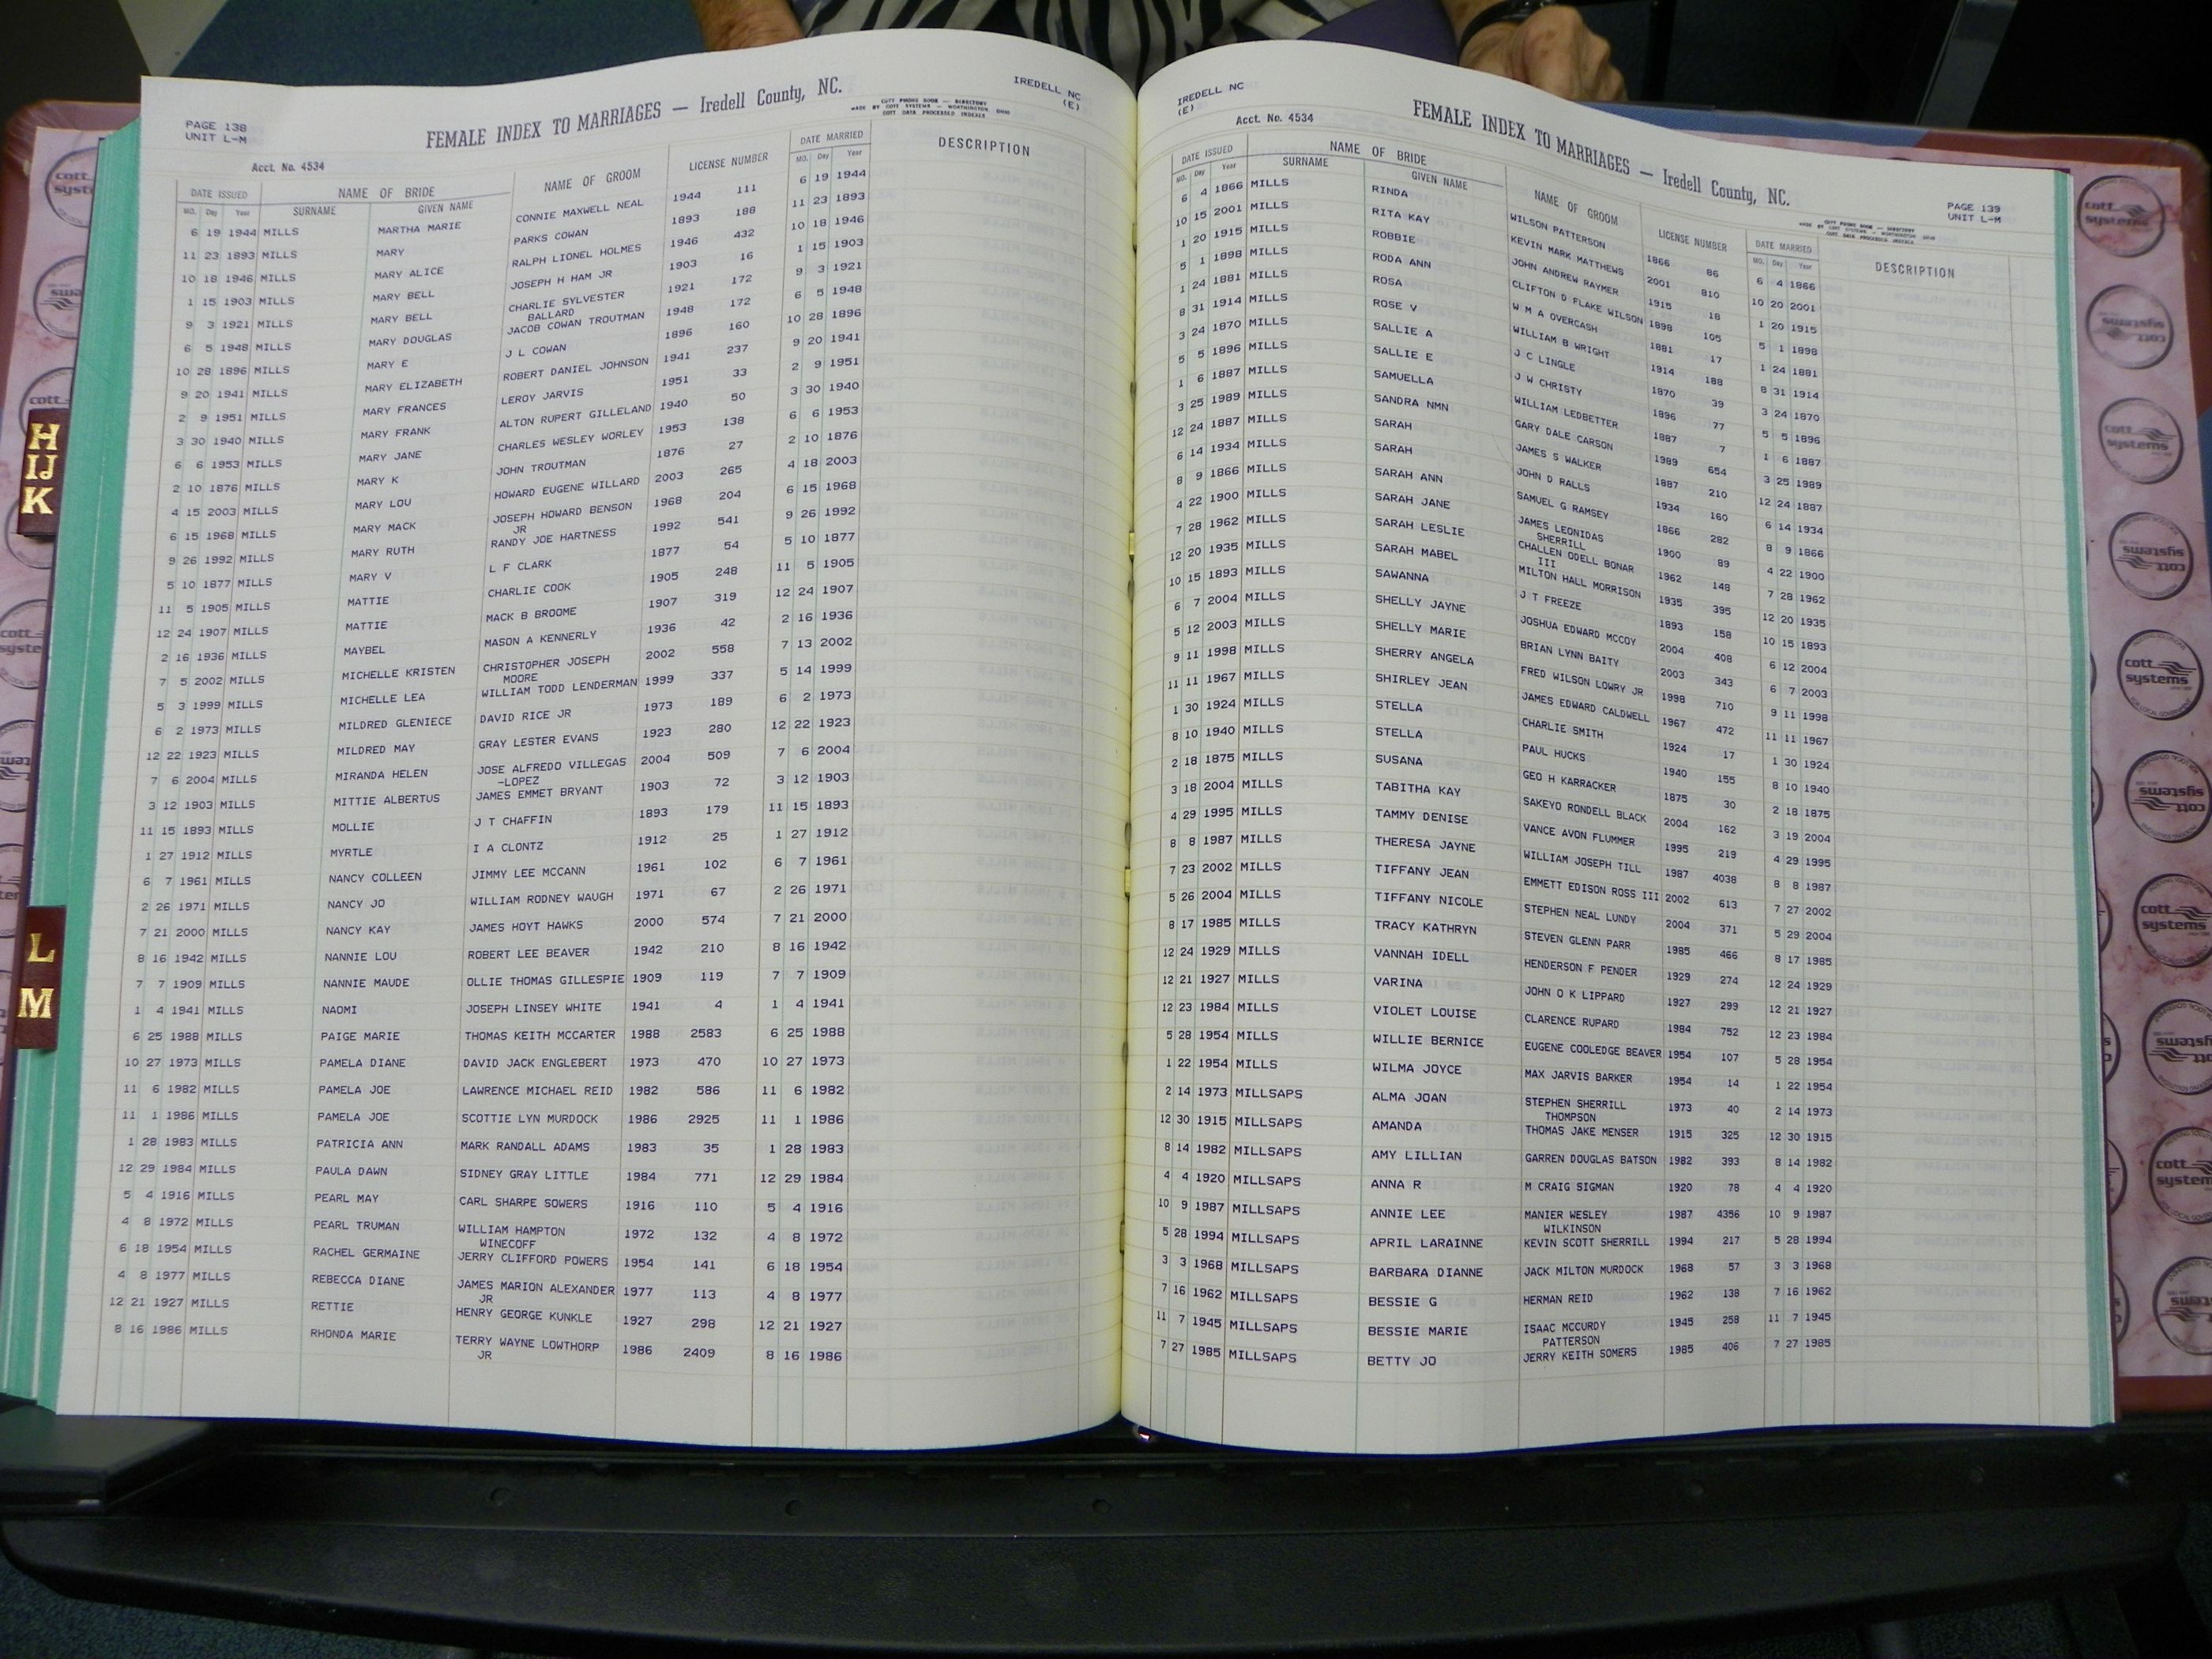 PAGE 138
UNIT L-M
FEMALE INDEX TO MARRIAGES — Iredell County, NC.
IREDELL NC
(E)
COTT PHONO BOOK — DIRECTORY
MADE BY COTT SYSTEMS — WORTHINGTON, OHIO
COTT DATA PROCESSED INDEXES
Acct. No. 4534
DATE ISSUED NAME OF BRIDE NAME OF GROOM LICENSE NUMBER DATE MARRIED DESCRIPTION
MO. Day Year SURNAME GIVEN NAME MO. Day Year
6 19 1944 MILLS MARTHA MARIE CONNIE MAXWELL NEAL 1944 111 6 19 1944
11 23 1893 MILLS MARY PARKS COWAN 1893 188 11 23 1893
10 18 1946 MILLS MARY ALICE RALPH LIONEL HOLMES 1946 432 10 18 1946
1 15 1903 MILLS MARY BELL JOSEPH H HAM JR 1903 16 1 15 1903
9 3 1921 MILLS MARY BELL CHARLIE SYLVESTER 1921 172 9 3 1921
BALLARD
6 5 1948 MILLS MARY DOUGLAS JACOB COWAN TROUTMAN 1948 172 6 5 1948
10 28 1896 MILLS MARY E J L COWAN 1896 160 10 28 1896
9 20 1941 MILLS MARY ELIZABETH ROBERT DANIEL JOHNSON 1941 237 9 20 1941
2 9 1951 MILLS MARY FRANCES LEROY JARVIS 1951 33 2 9 1951
3 30 1940 MILLS MARY FRANK ALTON RUPERT GILLELAND 1940 50 3 30 1940
6 6 1953 MILLS MARY JANE CHARLES WESLEY WORLEY 1953 138 6 6 1953
2 10 1876 MILLS MARY K JOHN TROUTMAN 1876 27 2 10 1876
4 15 2003 MILLS MARY LOU HOWARD EUGENE WILLARD 2003 265 4 18 2003
6 15 1968 MILLS MARY MACK JOSEPH HOWARD BENSON 1968 204 6 15 1968
JR
9 26 1992 MILLS MARY RUTH RANDY JOE HARTNESS 1992 541 9 26 1992
5 10 1877 MILLS MARY V L F CLARK 1877 54 5 10 1877
11 5 1905 MILLS MATTIE CHARLIE COOK 1905 248 11 5 1905
12 24 1907 MILLS MATTIE MACK B BROOME 1907 319 12 24 1907
2 16 1936 MILLS MAYBEL MASON A KENNERLY 1936 42 2 16 1936
7 5 2002 MILLS MICHELLE KRISTEN CHRISTOPHER JOSEPH 2002 558 7 13 2002
MOORE
5 3 1999 MILLS MICHELLE LEA WILLIAM TODD LENDERMAN 1999 337 5 14 1999
6 2 1973 MILLS MILDRED GLENIECE DAVID RICE JR 1973 189 6 2 1973
12 22 1923 MILLS MILDRED MAY GRAY LESTER EVANS 1923 280 12 22 1923
7 6 2004 MILLS MIRANDA HELEN JOSE ALFREDO VILLEGAS 2004 509 7 6 2004
-LOPEZ
3 12 1903 MILLS MITTIE ALBERTUS JAMES EMMET BRYANT 1903 72 3 12 1903
11 15 1893 MILLS MOLLIE J T CHAFFIN 1893 179 11 15 1893
1 27 1912 MILLS MYRTLE I A CLONTZ 1912 25 1 27 1912
6 7 1961 MILLS NANCY COLLEEN JIMMY LEE MCCANN 1961 102 6 7 1961
2 26 1971 MILLS NANCY JO WILLIAM RODNEY WAUGH 1971 67 2 26 1971
7 21 2000 MILLS NANCY KAY JAMES HOYT HAWKS 2000 574 7 21 2000
8 16 1942 MILLS NANNIE LOU ROBERT LEE BEAVER 1942 210 8 16 1942
7 7 1909 MILLS NANNIE MAUDE OLLIE THOMAS GILLESPIE 1909 119 7 7 1909
1 4 1941 MILLS NAOMI JOSEPH LINSEY WHITE 1941 4 1 4 1941
6 25 1988 MILLS PAIGE MARIE THOMAS KEITH MCCARTER 1988 2583 6 25 1988
10 27 1973 MILLS PAMELA DIANE DAVID JACK ENGLEBERT 1973 470 10 27 1973
11 6 1982 MILLS PAMELA JOE LAWRENCE MICHAEL REID 1982 586 11 6 1982
11 1 1986 MILLS PAMELA JOE SCOTTIE LYN MURDOCK 1986 2925 11 1 1986
1 28 1983 MILLS PATRICIA ANN MARK RANDALL ADAMS 1983 35 1 28 1983
12 29 1984 MILLS PAULA DAWN SIDNEY GRAY LITTLE 1984 771 12 29 1984
5 4 1916 MILLS PEARL MAY CARL SHARPE SOWERS 1916 110 5 4 1916
4 8 1972 MILLS PEARL TRUMAN WILLIAM HAMPTON 1972 132 4 8 1972
WINECOFF
6 18 1954 MILLS RACHEL GERMAINE JERRY CLIFFORD POWERS 1954 141 6 18 1954
4 8 1977 MILLS REBECCA DIANE JAMES MARION ALEXANDER 1977 113 4 8 1977
JR
12 21 1927 MILLS RETTIE HENRY GEORGE KUNKLE 1927 298 12 21 1927
8 16 1986 MILLS RHONDA MARIE TERRY WAYNE LOWTHORP 1986 2409 8 16 1986
JR
H
IJ
K
L
M
IREDELL NC
(E)
FEMALE INDEX TO MARRIAGES — Iredell County, NC.
PAGE 139
UNIT L-M
Acct. No. 4534
COTT PHONO BOOK — DIRECTORY
MADE BY COTT SYSTEMS — WORTHINGTON, OHIO
COTT DATA PROCESSED INDEXES
DATE ISSUED NAME OF BRIDE NAME OF GROOM LICENSE NUMBER DATE MARRIED DESCRIPTION
MO. Day Year SURNAME GIVEN NAME MO. Day Year
6 4 1866 MILLS RINDA WILSON PATTERSON 1866 86 6 4 1866
10 15 2001 MILLS RITA KAY KEVIN MARK MATTHEWS 2001 810 10 20 2001
1 20 1915 MILLS ROBBIE JOHN ANDREW RAYMER 1915 18 1 20 1915
5 1 1898 MILLS RODA ANN CLIFTON D FLAKE WILSON 1898 105 5 1 1898
1 24 1881 MILLS ROSA W M A OVERCASH 1881 17 1 24 1881
8 31 1914 MILLS ROSE V WILLIAM B WRIGHT 1914 188 8 31 1914
3 24 1870 MILLS SALLIE A J C LINGLE 1870 39 3 24 1870
5 5 1896 MILLS SALLIE E J W CHRISTY 1896 77 5 5 1896
1 6 1887 MILLS SAMUELLA WILLIAM LEDBETTER 1887 7 1 6 1887
3 25 1989 MILLS SANDRA NMN GARY DALE CARSON 1989 654 3 25 1989
12 24 1887 MILLS SARAH JAMES S WALKER 1887 210 12 24 1887
6 14 1934 MILLS SARAH JOHN D RALLS 1934 160 6 14 1934
8 9 1866 MILLS SARAH ANN SAMUEL G RAMSEY 1866 282 8 9 1866
4 22 1900 MILLS SARAH JANE JAMES LEONIDAS 1900 89 4 22 1900
SHERRILL
7 28 1962 MILLS SARAH LESLIE CHALLEN ODELL BONAR 1962 148 7 28 1962
III
12 20 1935 MILLS SARAH MABEL MILTON HALL MORRISON 1935 395 12 20 1935
10 15 1893 MILLS SAWANNA J T FREEZE 1893 158 10 15 1893
6 7 2004 MILLS SHELLY JAYNE JOSHUA EDWARD MCCOY 2004 408 6 12 2004
5 12 2003 MILLS SHELLY MARIE BRIAN LYNN BAITY 2003 343 6 7 2003
9 11 1998 MILLS SHERRY ANGELA FRED WILSON LOWRY JR 1998 710 9 11 1998
11 11 1967 MILLS SHIRLEY JEAN JAMES EDWARD CALDWELL 1967 472 11 11 1967
1 30 1924 MILLS STELLA CHARLIE SMITH 1924 17 1 30 1924
8 10 1940 MILLS STELLA PAUL HUCKS 1940 155 8 10 1940
2 18 1875 MILLS SUSANA GEO H KARRACKER 1875 30 2 18 1875
3 18 2004 MILLS TABITHA KAY SAKEYO RONDELL BLACK 2004 162 3 19 2004
4 29 1995 MILLS TAMMY DENISE VANCE AVON FLUMMER 1995 219 4 29 1995
8 8 1987 MILLS THERESA JAYNE WILLIAM JOSEPH TILL 1987 4038 8 8 1987
7 23 2002 MILLS TIFFANY JEAN EMMETT EDISON ROSS III 2002 613 7 27 2002
5 26 2004 MILLS TIFFANY NICOLE STEPHEN NEAL LUNDY 2004 371 5 29 2004
8 17 1985 MILLS TRACY KATHRYN STEVEN GLENN PARR 1985 466 8 17 1985
12 24 1929 MILLS VANNAH IDELL HENDERSON F PENDER 1929 274 12 24 1929
12 21 1927 MILLS VARINA JOHN O K LIPPARD 1927 299 12 21 1927
12 23 1984 MILLS VIOLET LOUISE CLARENCE RUPARD 1984 752 12 23 1984
5 28 1954 MILLS WILLIE BERNICE EUGENE COOLEDGE BEAVER 1954 107 5 28 1954
1 22 1954 MILLS WILMA JOYCE MAX JARVIS BARKER 1954 14 1 22 1954
2 14 1973 MILLSAPS ALMA JOAN STEPHEN SHERRILL 1973 40 2 14 1973
THOMPSON
12 30 1915 MILLSAPS AMANDA THOMAS JAKE MENSER 1915 325 12 30 1915
8 14 1982 MILLSAPS AMY LILLIAN GARREN DOUGLAS BATSON 1982 393 8 14 1982
4 4 1920 MILLSAPS ANNA R M CRAIG SIGMAN 1920 78 4 4 1920
10 9 1987 MILLSAPS ANNIE LEE MANIER WESLEY 1987 4356 10 9 1987
WILKINSON
5 28 1994 MILLSAPS APRIL LARAINNE KEVIN SCOTT SHERRILL 1994 217 5 28 1994
3 3 1968 MILLSAPS BARBARA DIANNE JACK MILTON MURDOCK 1968 57 3 3 1968
7 16 1962 MILLSAPS BESSIE G HERMAN REID 1962 138 7 16 1962
11 7 1945 MILLSAPS BESSIE MARIE ISAAC MCCURDY 1945 258 11 7 1945
PATTERSON
7 27 1985 MILLSAPS BETTY JO JERRY KEITH SOMERS 1985 406 7 27 1985
cott
systems